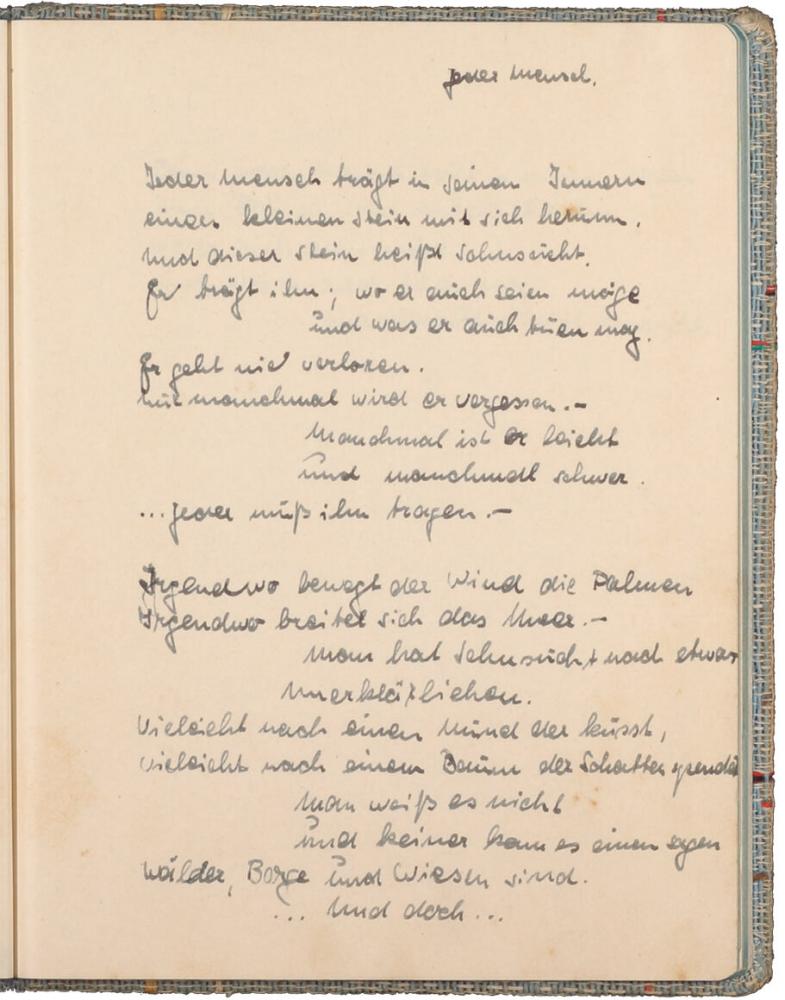 Jeder Mensch.
Jeder Mensch trägt in seinen Innern
einen kleinen Stein mit sich herum.
Und dieser Stein heißt Sehnsucht.
Er trägt ihn; wo er auch seien möge
und was er auch tuen mag.
Er geht nie verloren.
nur manchmal wird er vergessen.–
Manchmal ist er leicht
und manchmal schwer.
...jeder muß ihn tragen.–
Irgendwo bewegt der Wind die Palmen
Irgendwo breitet sich das Meer.–
Man hat Sehnsucht nach etwas
Unerklärlichen.
Vieleicht nach einen Mund der küsst,
vieleicht nach einem Baum der Schatten spendet
Man weiß es nicht
und keiner kann es einen sagen
Wälder, Berge und Wiesen sind.
... Und doch...